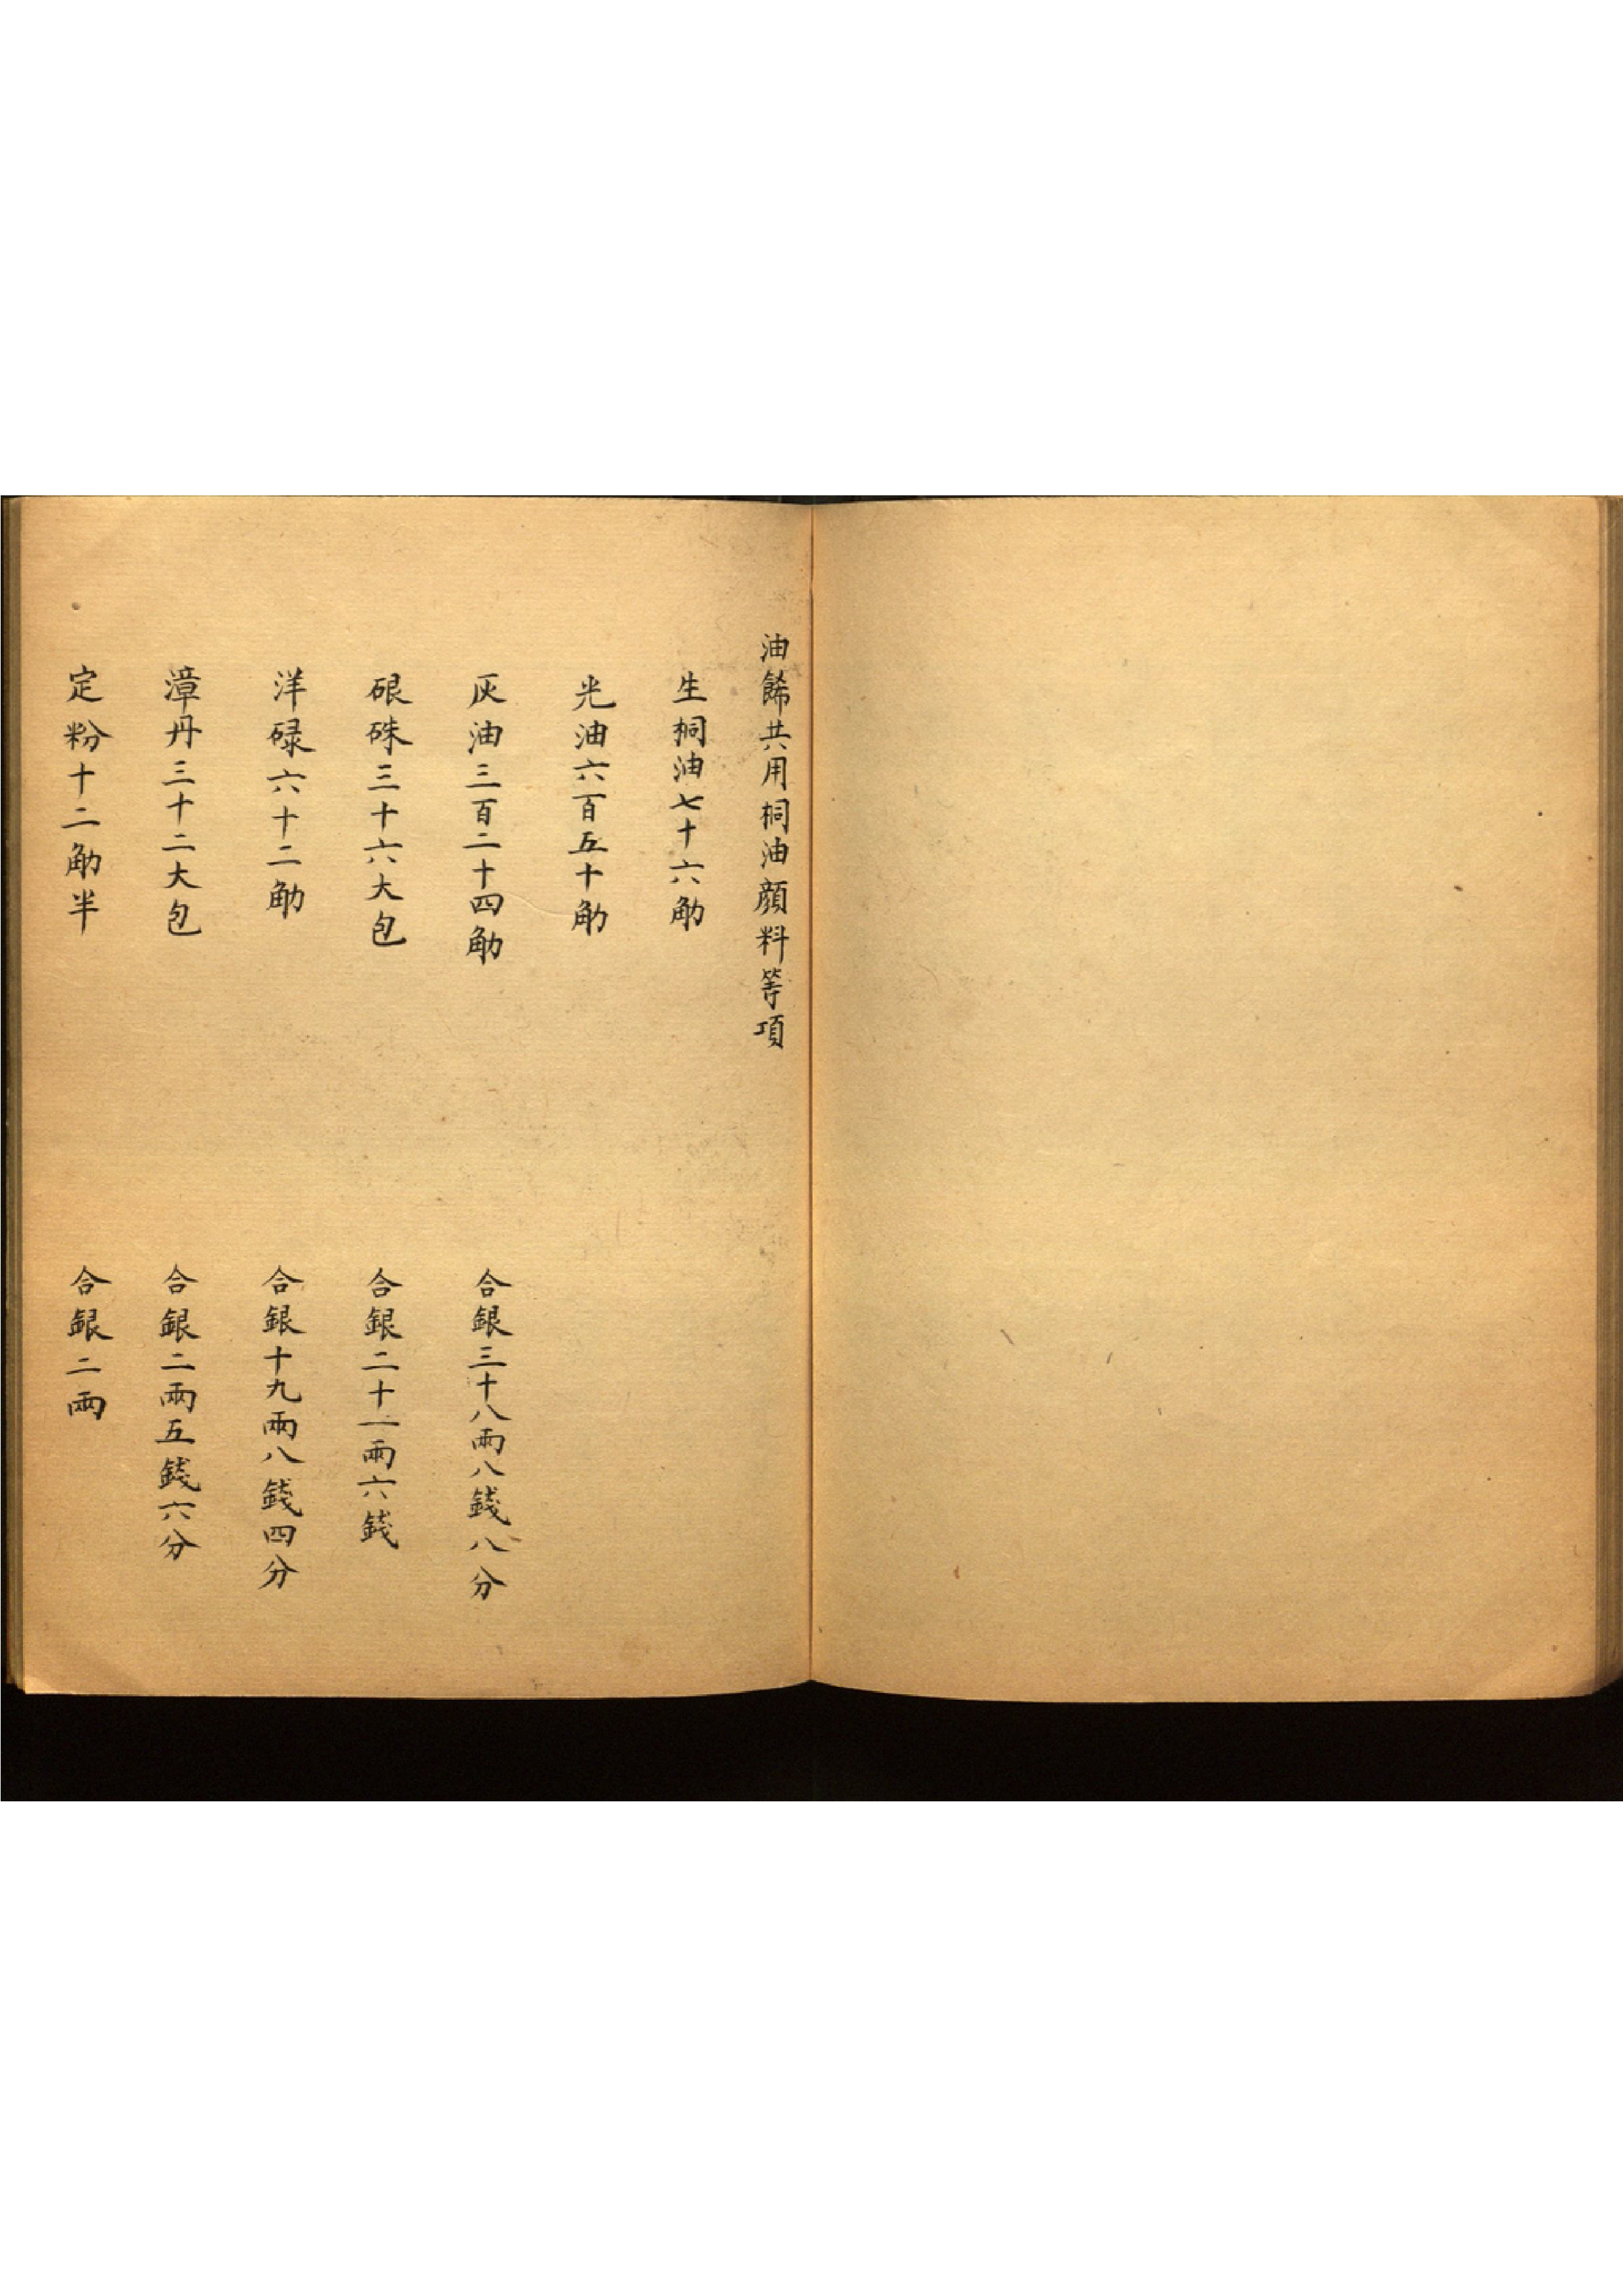 油餙共用桐油顔料等項
生桐油七十六觔
光油六百五十觔
灰油三百二十四觔 合銀三十八兩八錢八分
硍硃三十六大包 合銀二十一兩六錢
洋碌六十二觔 合銀十九兩八錢四分
漳丹三十二大包 合銀二兩五錢六分
定粉十二觔半 合銀二兩